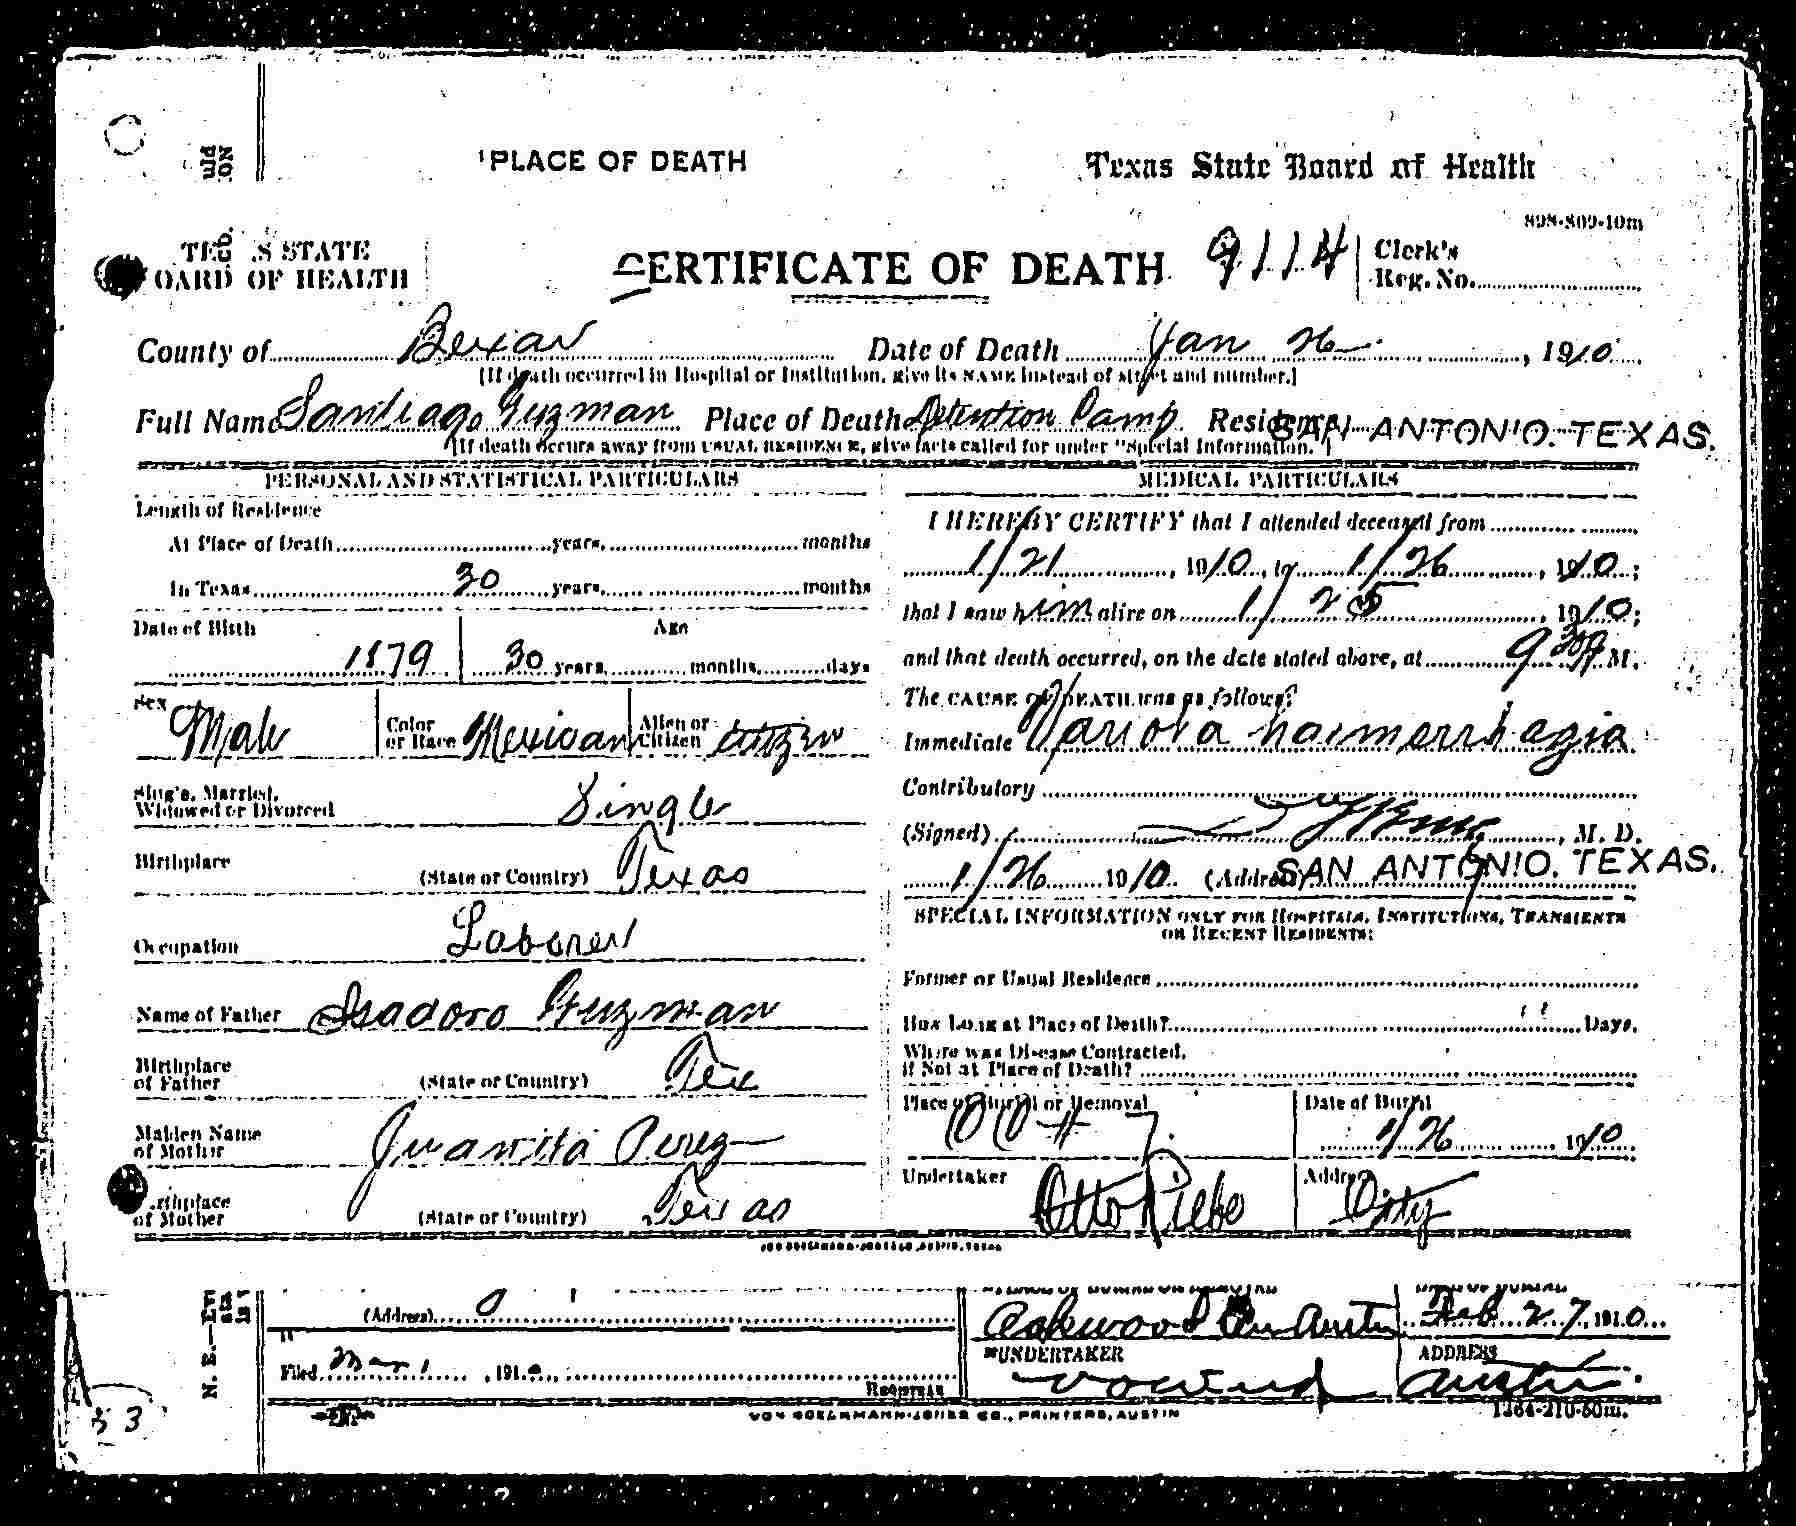 PLACE OF DEATH
Texas State Board of Health
898-809-10m
TE S STATE
OARD OF HEALTH
CERTIFICATE OF DEATH 9114 Clerk's
Reg. No.
County of Bexar Date of Death Jan 26 , 1910
[If death occurred in Hospital or Institution, give its NAME instead of street and number.]
Full Name Santiago Guzman Place of Death Detention Camp Residence SAN ANTONIO, TEXAS.
[If death occurs away from USUAL RESIDENCE, give facts called for under "Special Information."]
PERSONAL AND STATISTICAL PARTICULARS
Length of Residence
At Place of Death years, months
In Texas 30 years, months
Date of Birth Age
1879 30 years, months, days
Sex Male Color or Race Mexican Alien or Citizen citizen
Single, Married, Widowed or Divorced Single
Birthplace (State or Country) Texas
Occupation Laborer
Name of Father Isadoro Guzman
Birthplace of Father (State or Country) Tex
Maiden Name of Mother Juanita Perez
rthplace of Mother (State or Country) Texas
MEDICAL PARTICULARS
I HEREBY CERTIFY that I attended deceased from
1/21 , 1910, to 1/26 , 1910;
that I saw him alive on 1/25 , 1910;
and that death occurred, on the date stated above, at 9 30 a M.
The CAUSE OF DEATH was as follows:
Immediate Variola haemorrhagia
Contributory
(Signed) , M. D.
1/26 1910 (Address) SAN ANTONIO, TEXAS.
SPECIAL INFORMATION ONLY FOR HOSPITALS, INSTITUTIONS, TRANSIENTS
OR RECENT RESIDENTS:
Former or Usual Residence
How Long at Place of Death? Days.
Where was Disease Contracted,
if Not at Place of Death?
Place of Burial or Removal Date of Burial
# 7. 1/26 1910
Undertaker Otto Riebe Address City
(Address)
Filed Mar 1 , 191
REGISTRAR
Oakwood Cem Austin Feb 27, 1910
UNDERTAKER ADDRESS
Austin.
VON BOECKMANN-JONES CO., PRINTERS, AUSTIN
1364-210-50m.
N. B.—
53